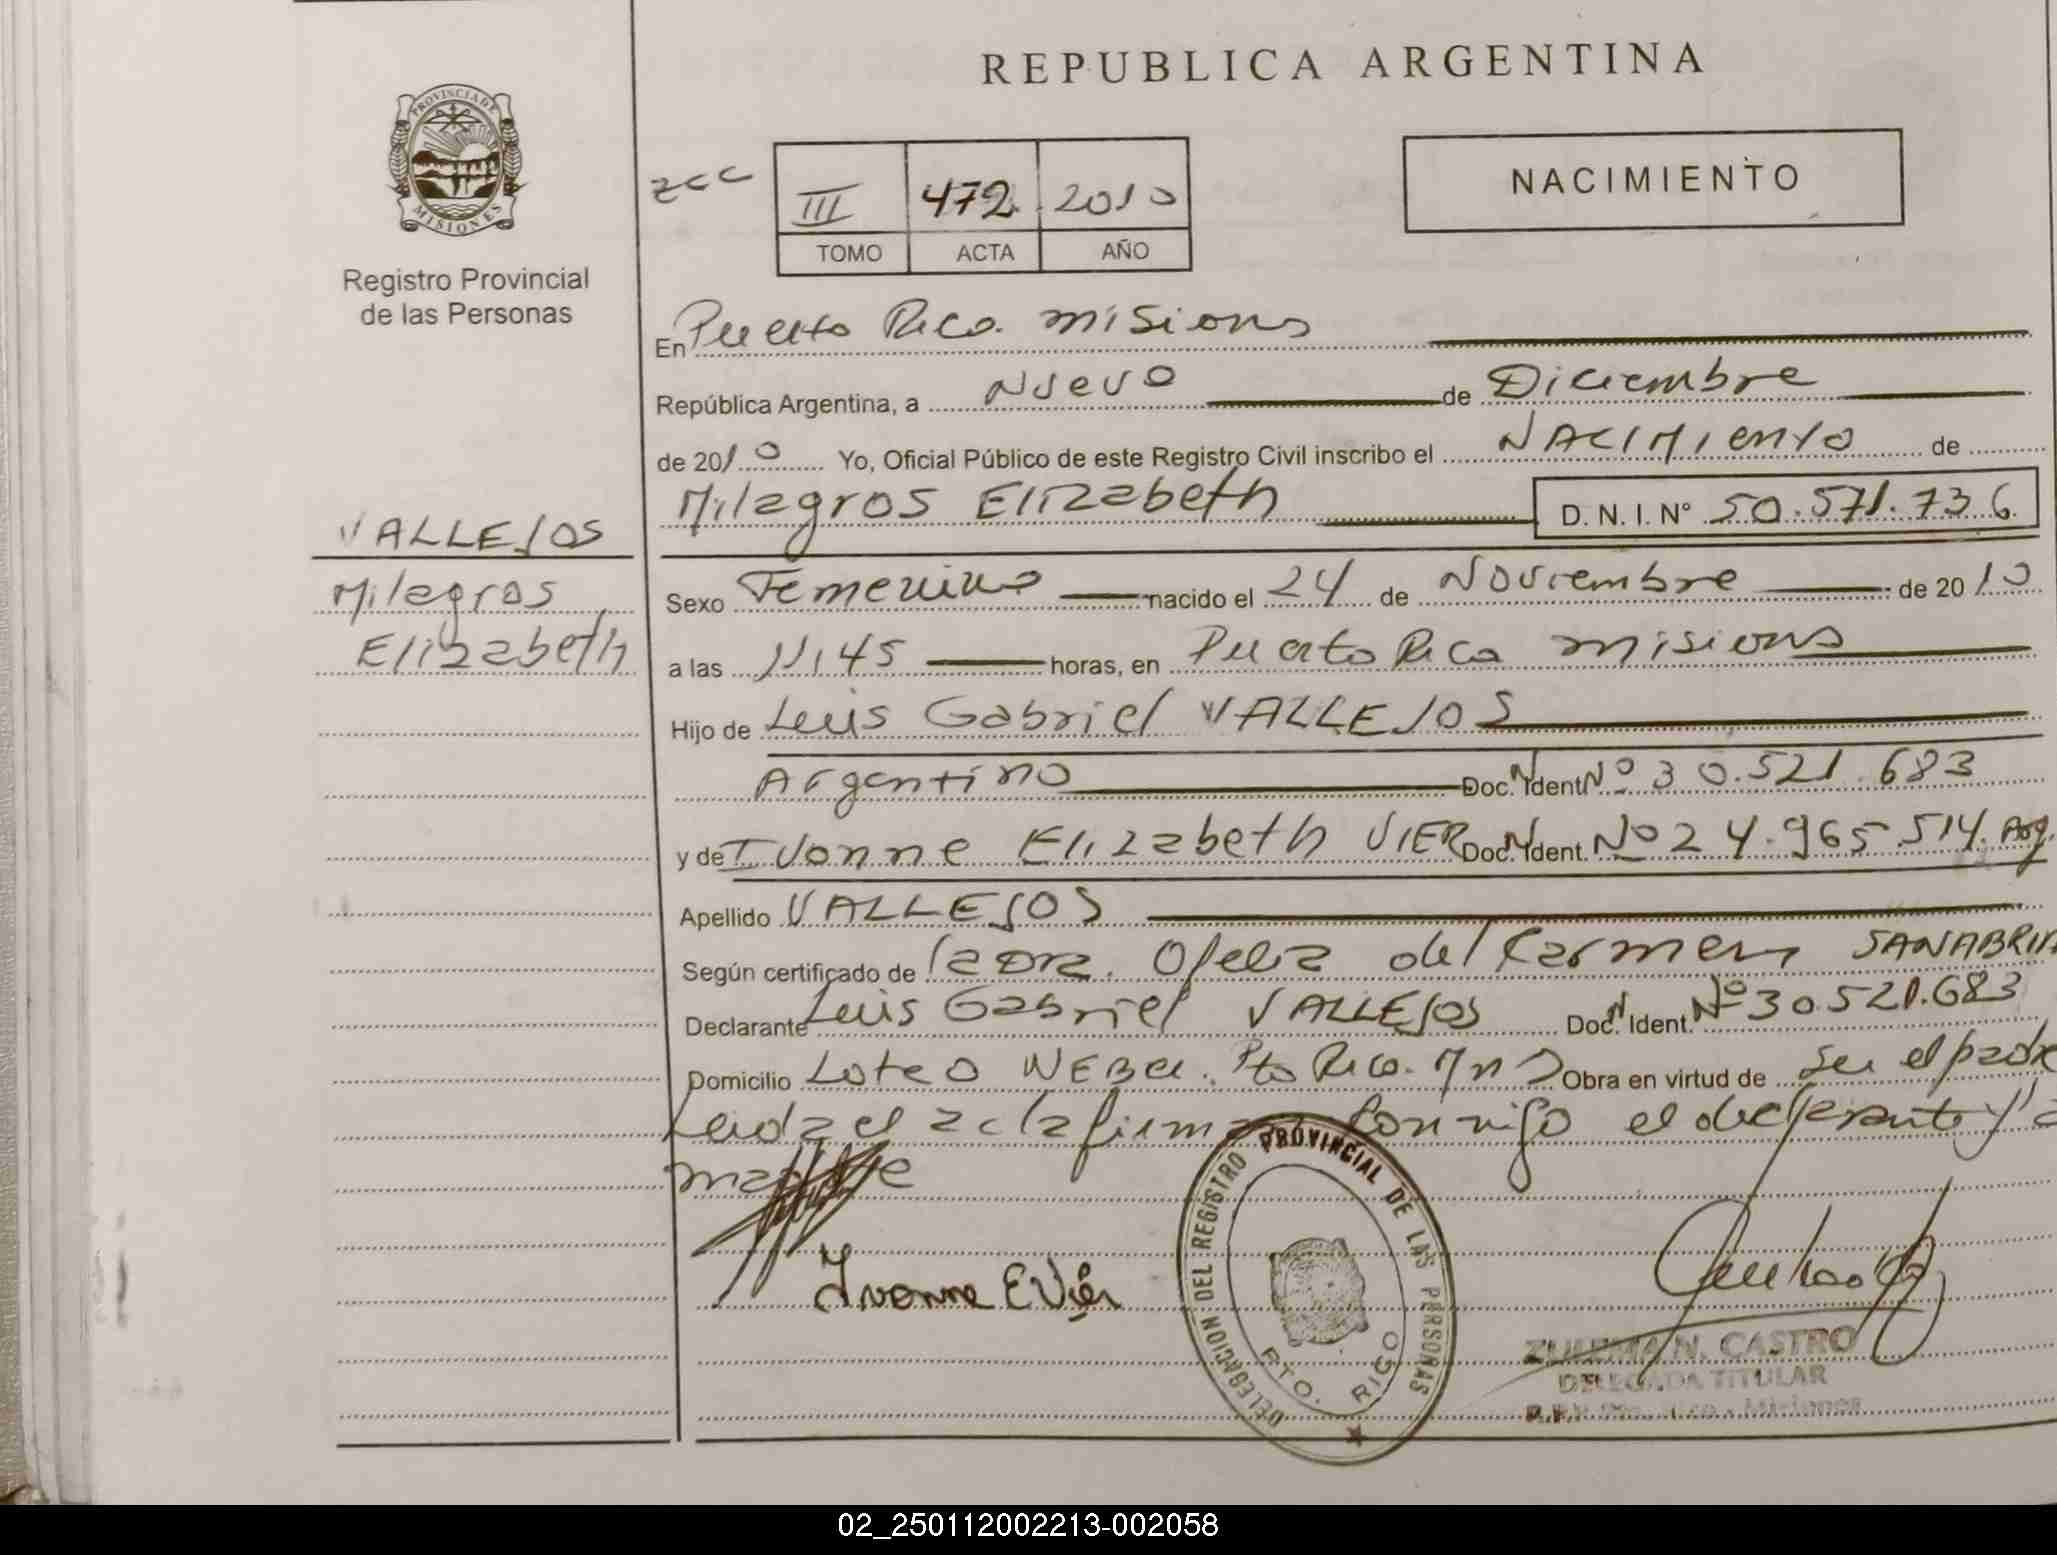 REPUBLICA ARGENTINA
PROVINCIA DE
MISIONES
Registro Provincial
de las Personas
zcc
III 472 2010
TOMO ACTA AÑO
NACIMIENTO
En Puerto Rico. misiones
República Argentina, a Nuevo de Diciembre
de 2010 Yo, Oficial Público de este Registro Civil inscribo el NACIMIENTO de
Milagros Elizabeth D.N.I. Nº 50.571.736
VALLEJOS
Milagros
Elizabeth
Sexo Femenino nacido el 24 de Noviembre de 2010
a las 11,45 horas, en Puerto Rico misiones
Hijo de Luis Gabriel VALLEJOS
Argentino Doc. Ident Nº 30.521.683
y de Ivonne Elizabeth VIER Doc. Ident. Nº 24.965.514. Arg.
Apellido VALLEJOS
Según certificado de Ofelia del Carmen SANABRIA
Declarante Luis Gabriel VALLEJOS Doc. Ident. Nº 30.521.683
Domicilio Loteo WEBER. Pto Rico. Mns Obra en virtud de ser el padre
Leida el acta firma conmigo el declarante y la
madre
Ivonne E Vier
DELEGACION DEL REGISTRO PROVINCIAL DE LAS PERSONAS
PTO. RICO
ZULEMA N. CASTRO
DELEGADA TITULAR
R.P.P. Pto. Rico - Misiones
02_250112002213-002058